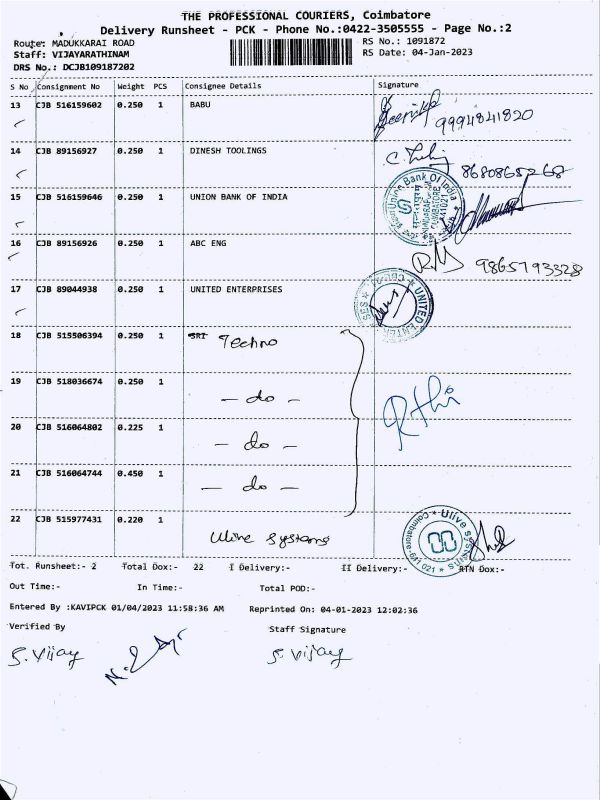 THE PROFESSIONAL COURIERS, Coimbatore
Delivery Runsheet - PCK - Phone No.:0422-3505555 - Page No.:2
Route: MADUKKARAI ROAD
RS No.: 1091872
Staff: VIJAYARATHINAM
RS Date: 04-Jan-2023
DRS No.: DCJB109187202
S No Consignment No Weight PCS Consignee Details Signature
13 CJB 516159602 0.250 1 BABU 9994841820
14 CJB 89156927 0.250 1 DINESH TOOLINGS 8680865268
15 CJB 516159646 0.250 1 UNION BANK OF INDIA Union Bank Of India
16 CJB 89156926 0.250 1 ABC ENG 9865793328
17 CJB 89044938 0.250 1 UNITED ENTERPRISES
18 CJB 515506394 0.250 1 SRI Techno
19 CJB 518036674 0.250 1 - do -
20 CJB 516064802 0.225 1 - do -
21 CJB 516064744 0.450 1 - do -
22 CJB 515977431 0.220 1 Ulive systems
Tot. Runsheet:- 2 Total Dox:- 22 I Delivery:- II Delivery:- RTN Dox:-
Out Time:- In Time:- Total POD:-
Entered By :KAVIPCK 01/04/2023 11:58:36 AM Reprinted On: 04-01-2023 12:02:36
Verified By Staff Signature
S. Vijay S. Vijay